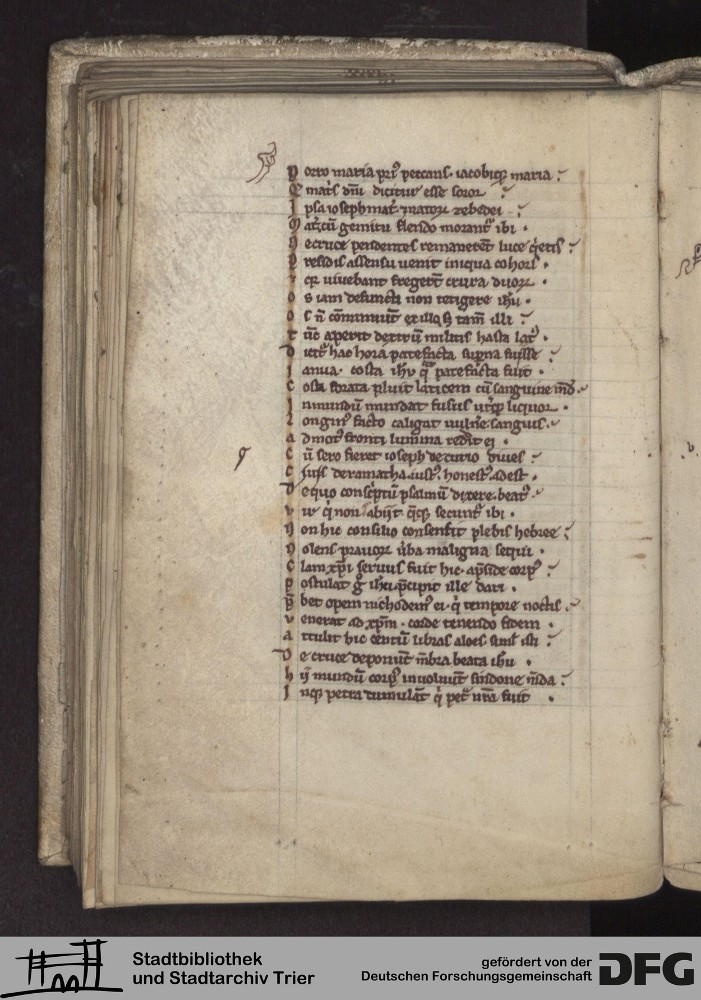 Porro maria pri9 peccans. iacobiq; maria.
Et mat's dñi dicitur esse soror
Ipsa ioseph mat' 7 natoꝝ zebedei.
Mat' cū gemitu flendo morant' ibi.
Ne cruce pendentes remanerēt luce q̇etis
Presidis assensu uenit iniqua cohors.
7 q; uiuebant fregerūt crura duoꝝ.
os iam defuncti non tetigere ih'u.
os n̄ cōminuūt ex illo, ſ; tam̄ illi
tūc aperit dextrū militis hasta lat9.
Dicit' hac hora patefacta superna fuisse
Ianua. costa ih'u q̄ patefacta fuit.
Costa forata pluit laticem cū sanguine mūdo.
Inmundū mundat fusus utq; liquor.
Longin9 facto caligat uulnere sanguis.
admot9 fronti lumina reddit ei.
Cū sero fieret ioseph decurio diues
Ciuis de ramatha. iust9. honest9. adest.
De quo conscriptū psalmū dixere. beat9
uir q̇ non abiit. q̄q; secunt' ibi.
Non hic consilio consensit plebis hebree
Nolens prauoꝝ ūba maligna sequi.
Clam xp̄i seruus fuit hic. a p̄side corp9
postulat g° ih'u. p̄cipit ille dari.
p̄bet opem nichodem9 ei. q̇ tempore noctis
uenerat ad xp̄m. corde tenendo fidem.
attulit hic centū libras aloes simul isti
De cruce deponūt mēbra beata ih'u
hij mundū corp9 inuoluūt sindone mūda
Inq; petra tumulāt q̇ petra nr̄a fuit.
Stadtbibliothek
und Stadtarchiv Trier
gefördert von der
Deutschen Forschungsgemeinschaft DFG